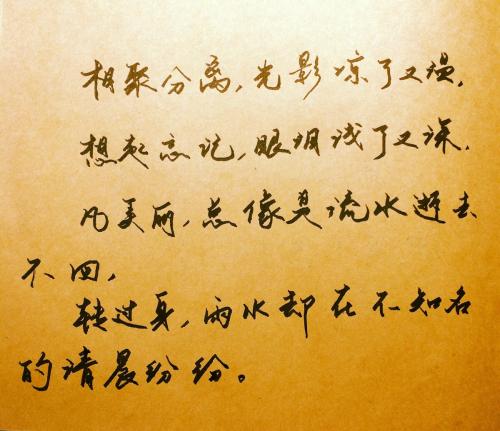 相聚分离,光影凉了又温,
想起忘记,眼泪浅了又深.
凡美丽,总像是流水逝去
不回,
转过身,雨水却在不知名
的清晨纷纷。